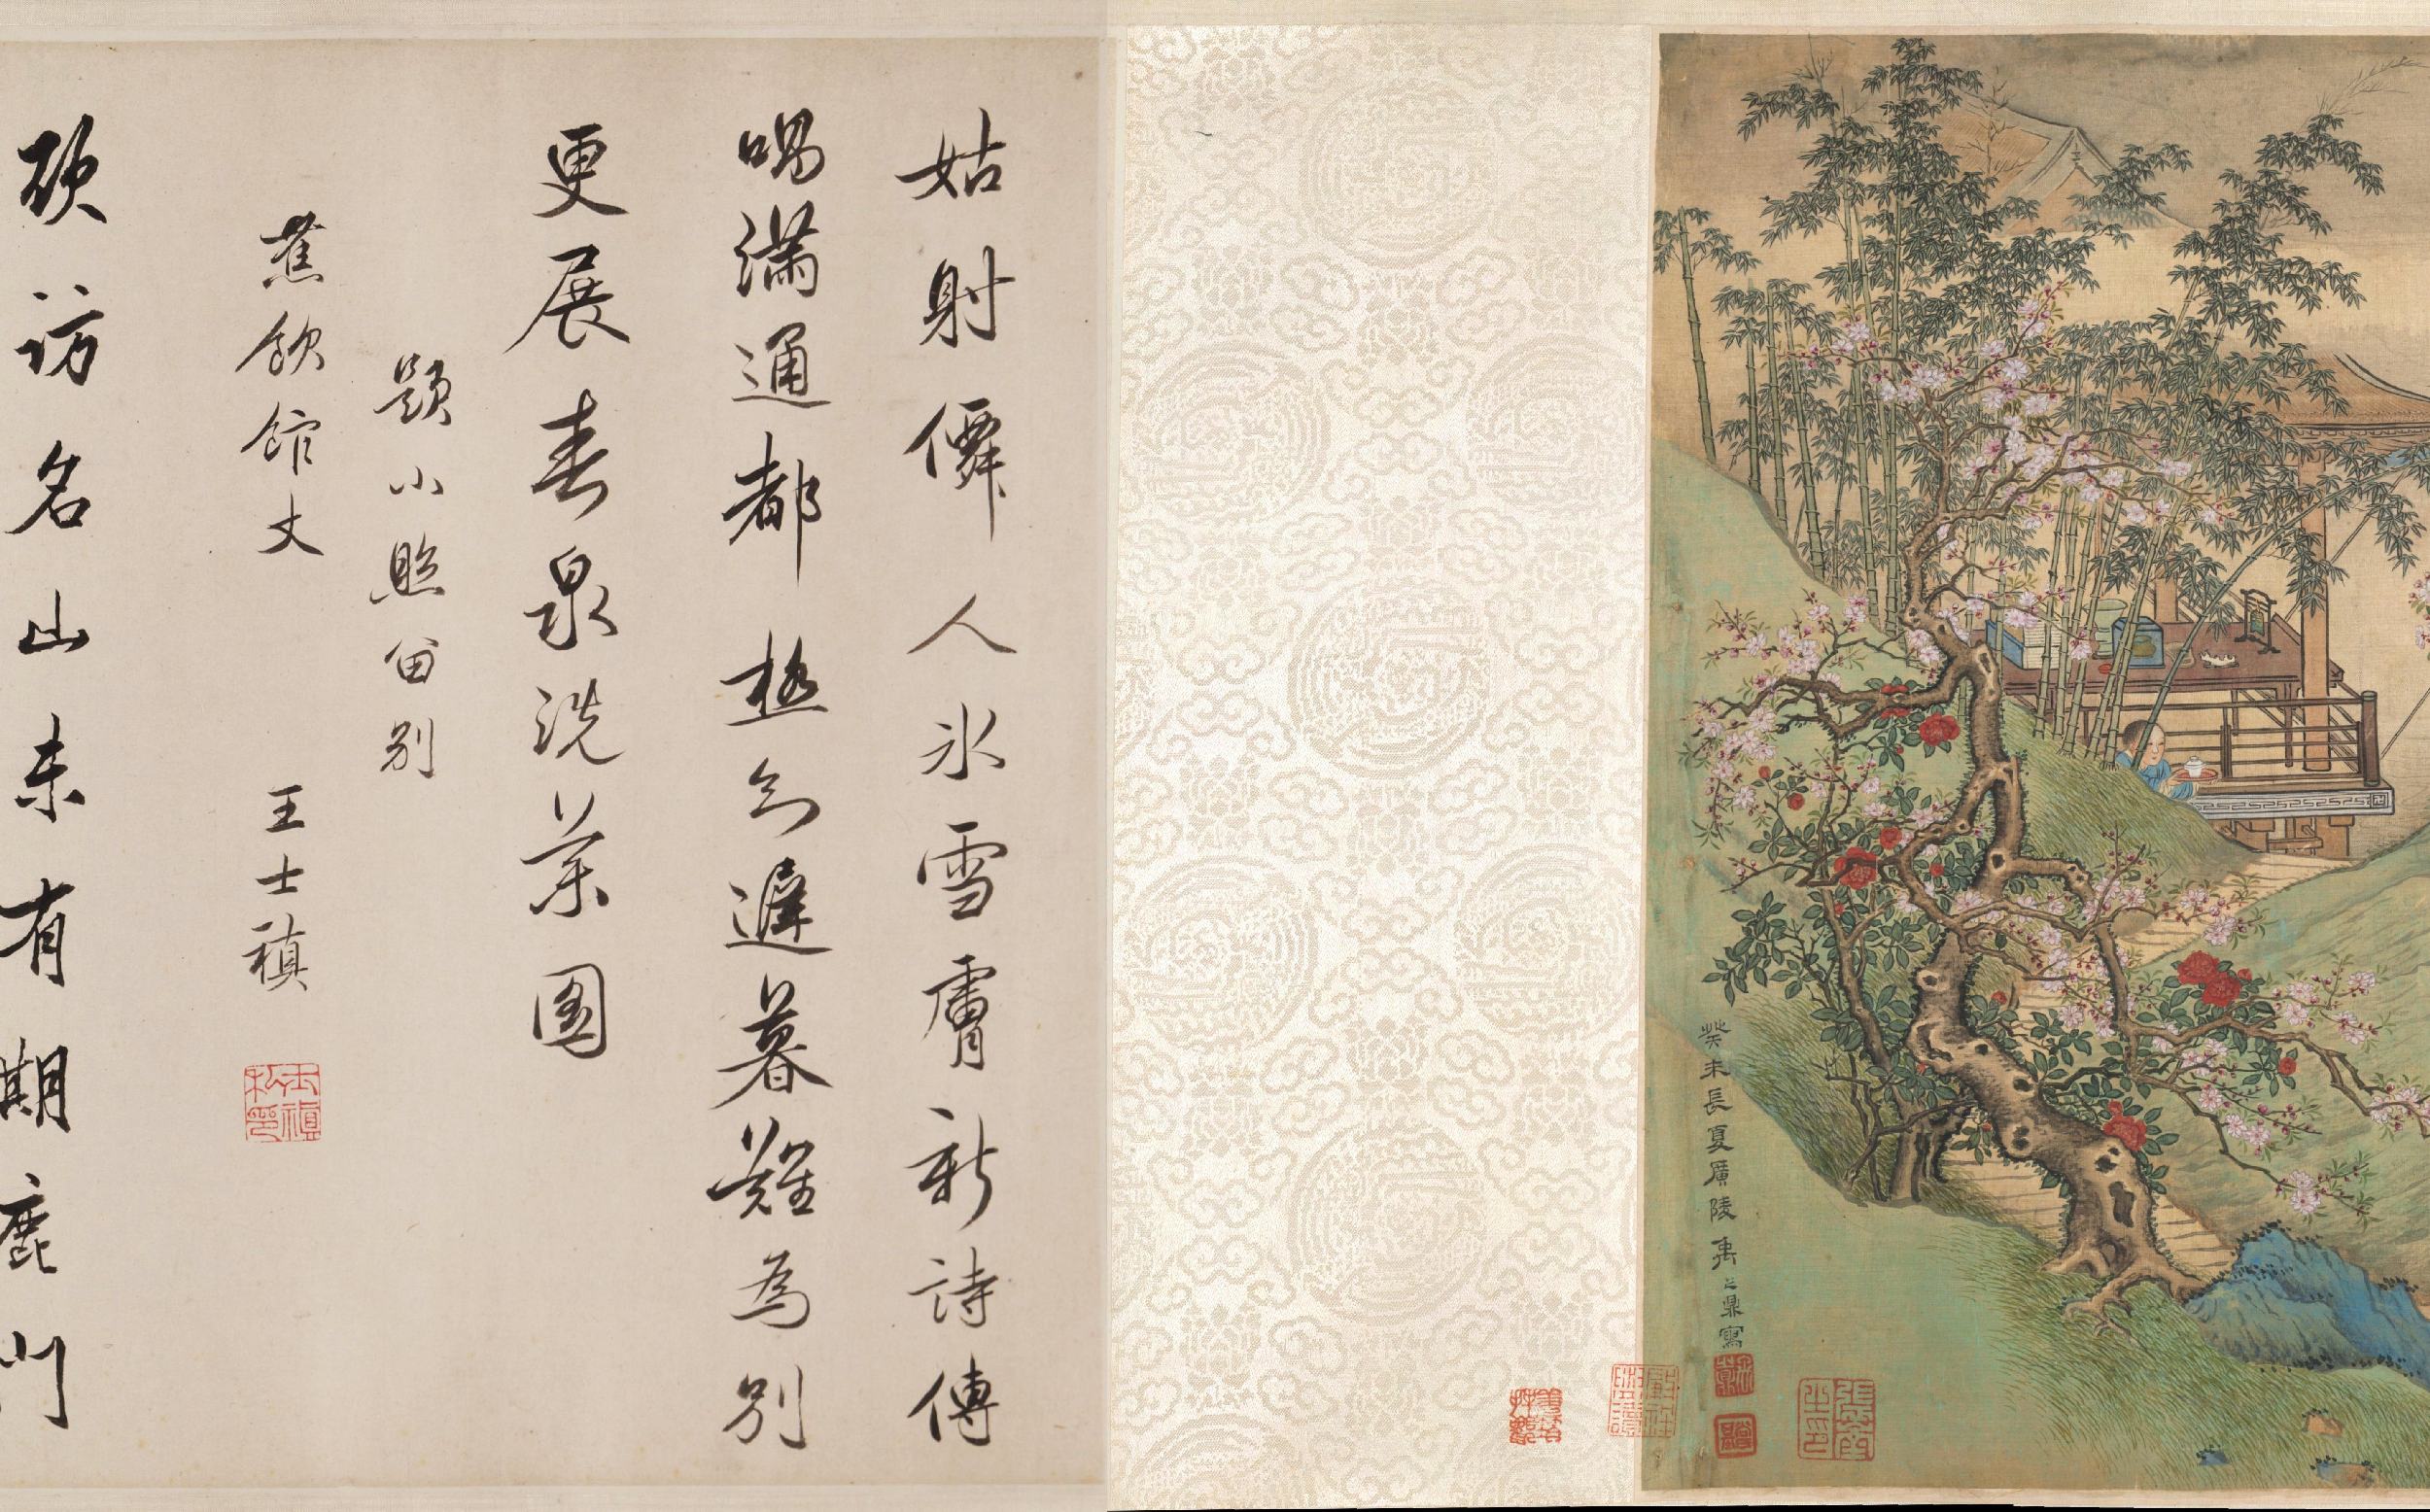 癸未長夏廣陵禹之鼎寫
姑射僊人氷雪膚新詩傳
唱滿通都極知遲暮難為別
更展春泉洗藥圖
題小照留別
蕉飲館丈 王士禛
欲訪名山未有期鹿門